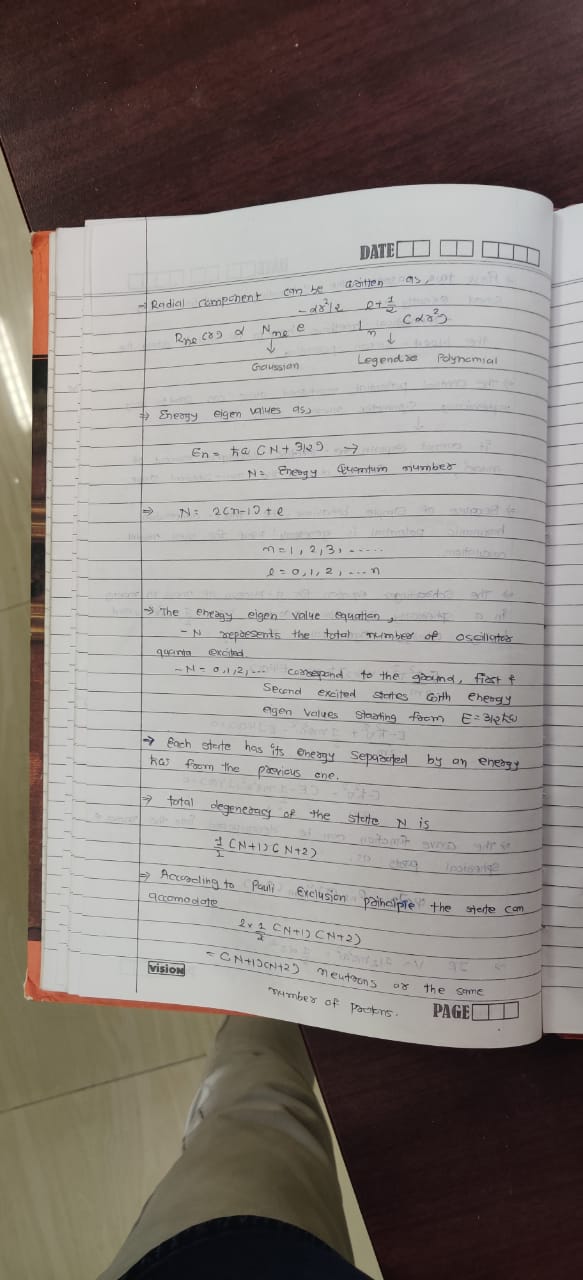 DATE
→ Radial component can be written as,
Rnl (r) α Nnl e^-αr²/2 L_n^l+1/2 (αr²)
↓ ↓
Gaussian Legendre Polynomial
⇒ Energy eigen values as,
En = ħω (N + 3/2) →
N = Energy Quantum number
⇒ N = 2(n-1) + l
n = 1, 2, 3, .....
l = 0, 1, 2, ... n
→ The energy eigen value equation,
- N represents the total number of oscillator
quanta excited.
- N = 0, 1, 2, ... correspond to the ground, first &
Second excited states with energy
eigen values starting from E = 3/2 ħω
→ Each state has its energy separated by an energy
ħω from the previous one.
→ total degeneracy of the state N is
1/2 (N+1) (N+2)
⇒ According to Pauli Exclusion principle the state can
accomodate
2 × 1/2 (N+1) (N+2)
= (N+1) (N+2) neutrons or the same
number of protons.
vision
PAGE